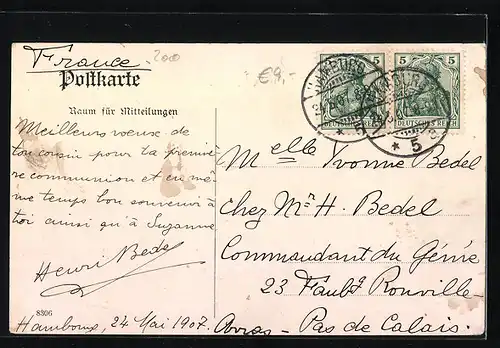 France
2000
€9,-
Postkarte
Raum für Mitteilungen
5 5
DEUTSCHES REICH
DEUTSCHES REICH
* 5
Meilleurs voeux de
ton cousin pour ta premiè
re communion et en mê
me temps bon souvenir à
toi ainsi qu'à Suzanne
Henri Bedel
8306
Hambourg, 24 Mai 1907.
Melle Yvonne Bedel
Chez Mr H. Bedel
Commandant du Génie
23 Faubg Ronville-
Arras - Pas de Calais.